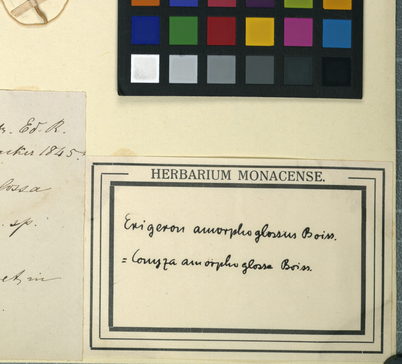 Ed. R.
1845.
sp.
HERBARIUM MONACENSE.
Erigeron amorphoglossus Boiss.
= Conyza amorphoglossa Boiss.